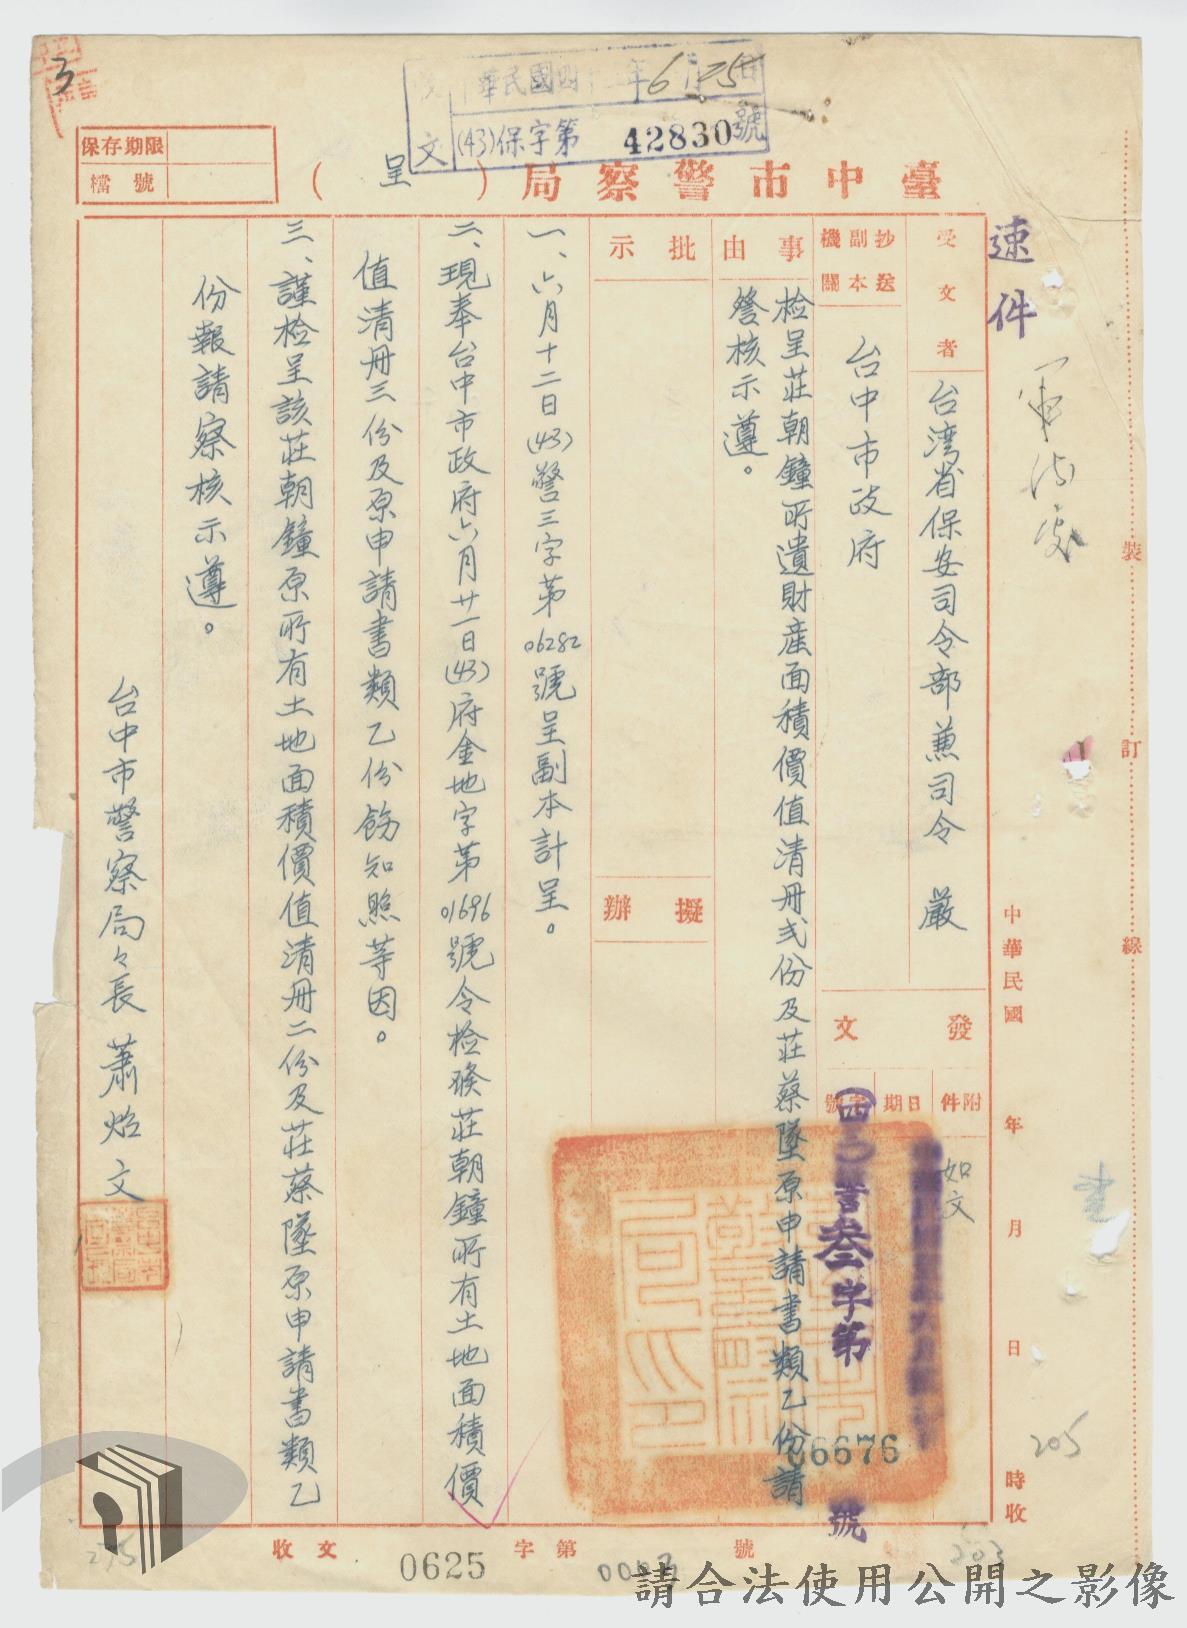 3
保存期限
檔號
收文
中華民國四十三年6月25日
(43)保字第 42830號
臺中市警察局（呈）
速件
軍法處
受文者
台灣省保安司令部兼司令 嚴
抄送副本機關
台中市政府
發文
附件
如文
日期
字號
(四三)警叁字第
06676
號
事由
检呈莊朝鐘所遺財產面積價值清册弍份及莊蔡墜原申請書類乙份請
詧核示遵。
批示
擬辦
一、六月十二日(43)警三字第06282號呈副本計呈。
二、現奉台中市政府六月廿一日(43)府金地字第01696號令检發莊朝鐘所有土地面積價
值清册三份及原申請書類乙份飭知照等因。
三、謹检呈該莊朝鐘原所有土地面積價值清册二份及莊蔡墜原申請書類乙
份報請察核示遵。
台中市警察局々長 蕭焰文
中華民國 年 月 日 時收
裝訂線
205
收文 0625 字第 號
203
275
請合法使用公開之影像